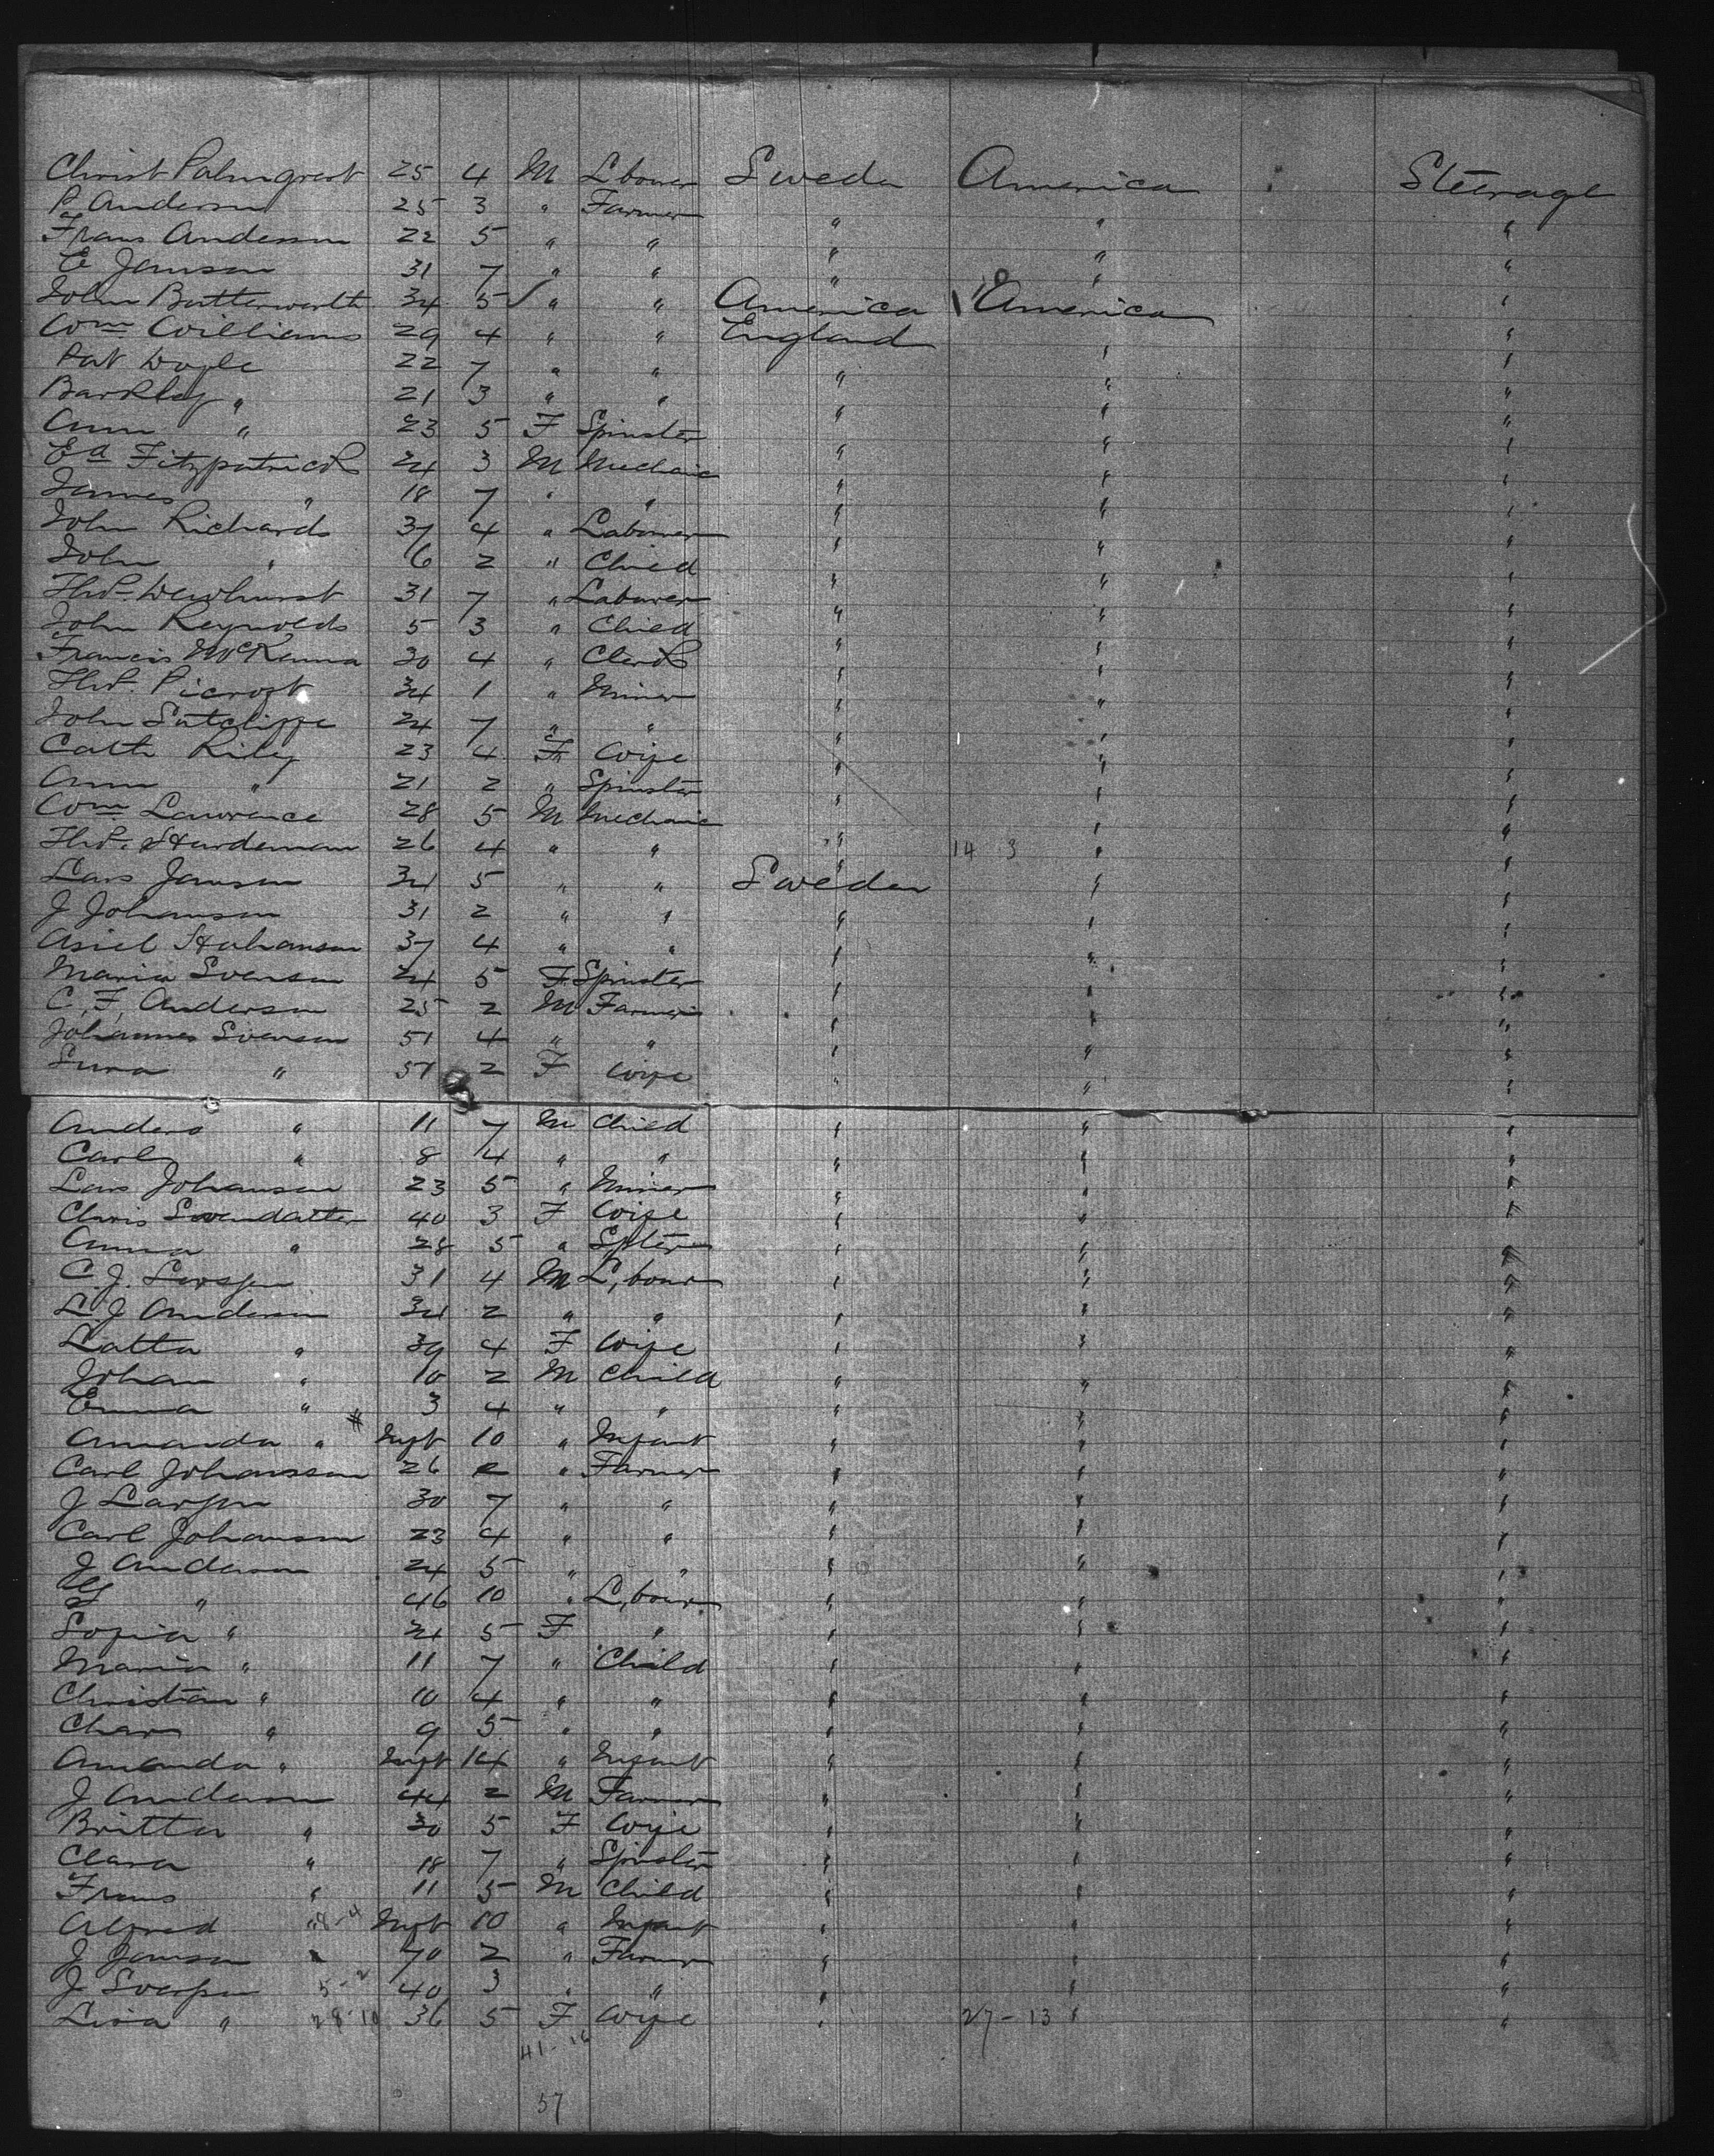 Christ Palmgrest 25 4 M Lbourer Sweden America Steerage
P Anderson 25 3 " Farmer " " "
Frans Anderson 22 5 " " " " "
E Janson 31 7 " " " " "
John Butterworth 34 5 " " America America "
Wm Williams 29 4 " " England " "
Pat Doyle 22 7 " " " " "
Barkley " 21 3 " " " " "
Ann " 23 5 F Spinster " " "
Ed Fitzpatrick 24 3 M Mechanic " " "
James " 18 7 " " " " "
John Richards 37 4 " Labourer " " "
John " 6 2 " Child " " "
Thos. Dewhurst 31 7 " Labourer " " "
John Reynolds 5 3 " Child " " "
Francis McKenna 30 4 " Clerk " " "
Thos. 34 1 " Miner " " "
John Sutcliffe 24 7 " " " " "
Cath Riley 23 4 F Wife " " "
Ann " 21 2 " Spinster " " "
Wm Lawrence 28 5 M Mechanic " " "
Thos. Hardeman 26 4 " " " 14 3 " "
Lars Janson 34 5 " " Sweden " "
J Johanson 31 2 " " " " "
37 4 " " " " "
Maria Svenson 24 5 F Spinster " " "
C. F. Anderson 25 2 M Farmer " " "
Johannes Svenson 51 4 " " " " "
" 51 2 F Wife " " "
Anders " 11 7 M Child " " "
Carl " 8 4 " " " " "
Lars Johanson 23 5 " Miner " " "
Chris Svendatter 40 3 F Wife " " "
Anna " 28 5 " Spster " " "
C. J. 31 4 M L,bour " " "
L. J Anderson 34 2 " " " " "
Latta " 39 4 F Wife " " "
Johan " 10 2 M Child " " "
Emma " 3 4 " " " " "
Amanda " Inft 10 " Infant " " "
Carl Johansson 26 2 " Farmer " " "
J Larsen 30 7 " " " " "
Carl Johanson 23 4 " " " " "
J Anderson 24 5 " " " " "
" 46 10 " L,bour " " "
Sofia " 24 5 F " " " "
Maria " 11 7 " Child " " "
Christian " 10 4 " " " " "
Chars " 9 5 " " " " "
Amanda " Inft 14 " Infant " " "
J Anderson 44 2 M Farmer " " "
Britta " 30 5 F Wife " " "
Clara " 18 7 " Spinster " " "
Frans " 11 5 M Child " " "
Alfred " 8-4 Inft 10 " Infant " " "
J Janson 70 2 " Farmer " " "
J 5-2 40 3 " " " " "
Lisa " 28-10 36 5 F Wife " 27-13 " "
41-16
57